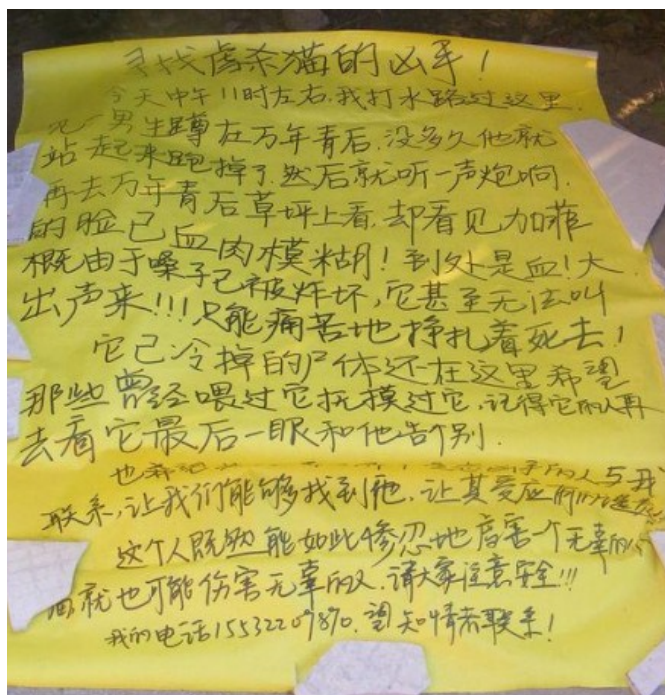 寻找虐杀猫的凶手！
今天中午11时左右，我打水路过这里，
见一男生蹲在万年青后，没多久他就
站起来跑掉了，然后就听一声炮响，
再去万年青后草坪上看，却看见加菲
的脸已血肉模糊！到处是血！大
概由于嗓子已被炸坏，它甚至无法叫
出声来！！！只能痛苦地挣扎着死去！
它已冷掉的尸体还在这里希望
那些曾经喂过它抚摸过它，记得它的人再
去看它最后一眼和他告个别.
也希望 的人与我
联系，让我们能够找到他，让其受应
这个人既然能如此惨忍地 害一个无辜的
就也可能伤害无辜的人，请大家注意安全!!!
我的电话15532209890，望知情者联系！